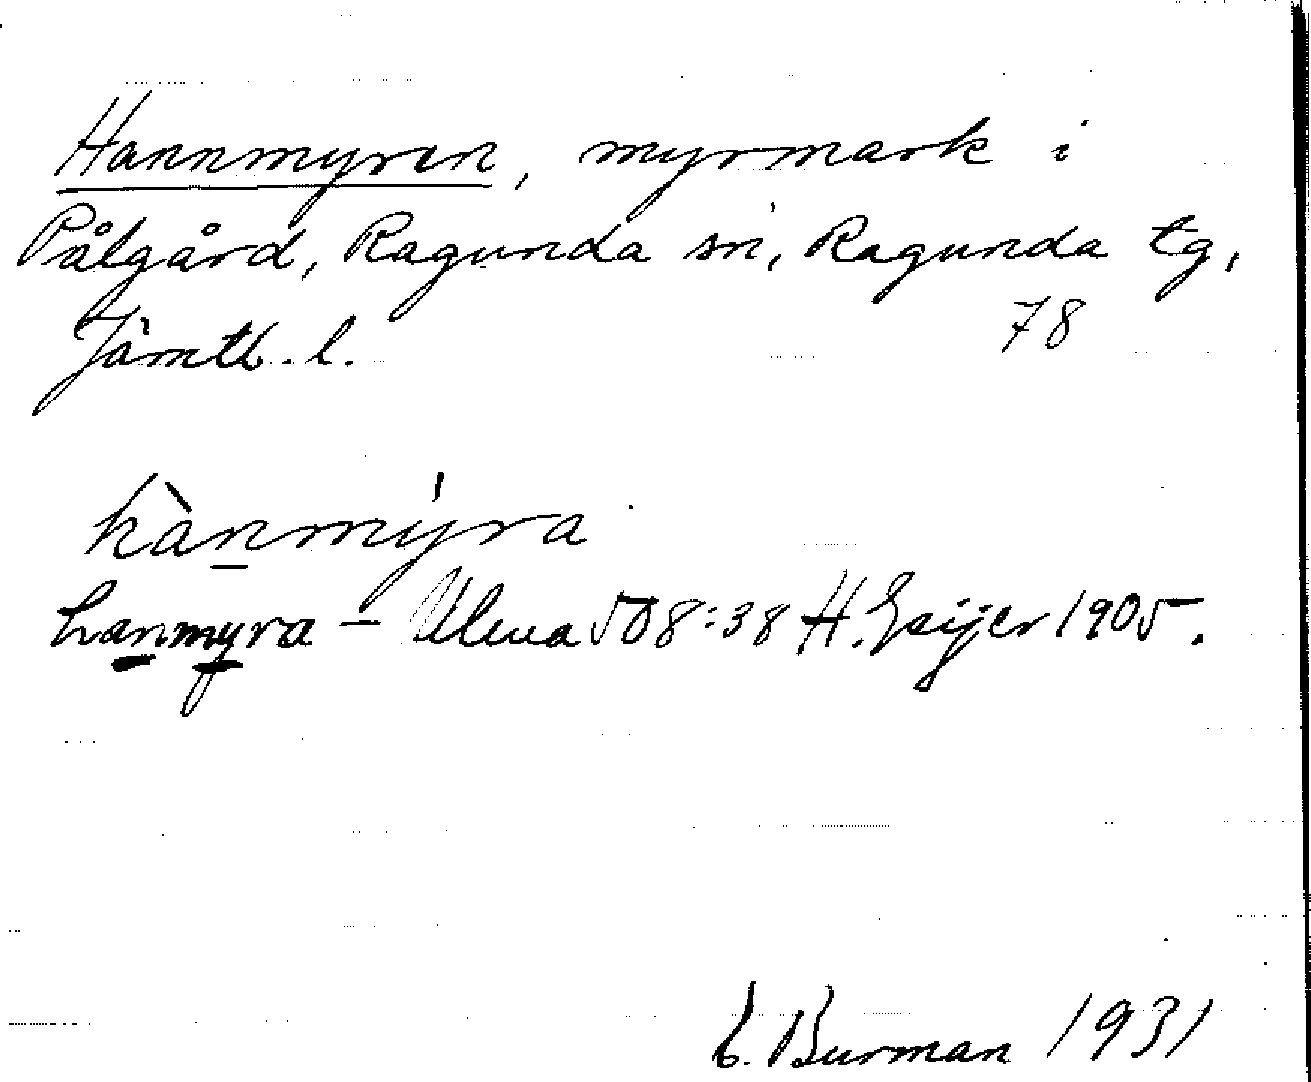 Hannmyren, myrmark i
Pålgård, Ragunda sn, Ragunda tg,
Jämtl. l. 78
hànmýra
hanmyra – Ulma 508:38 H. Geijer 1905.
E. Burman 1931